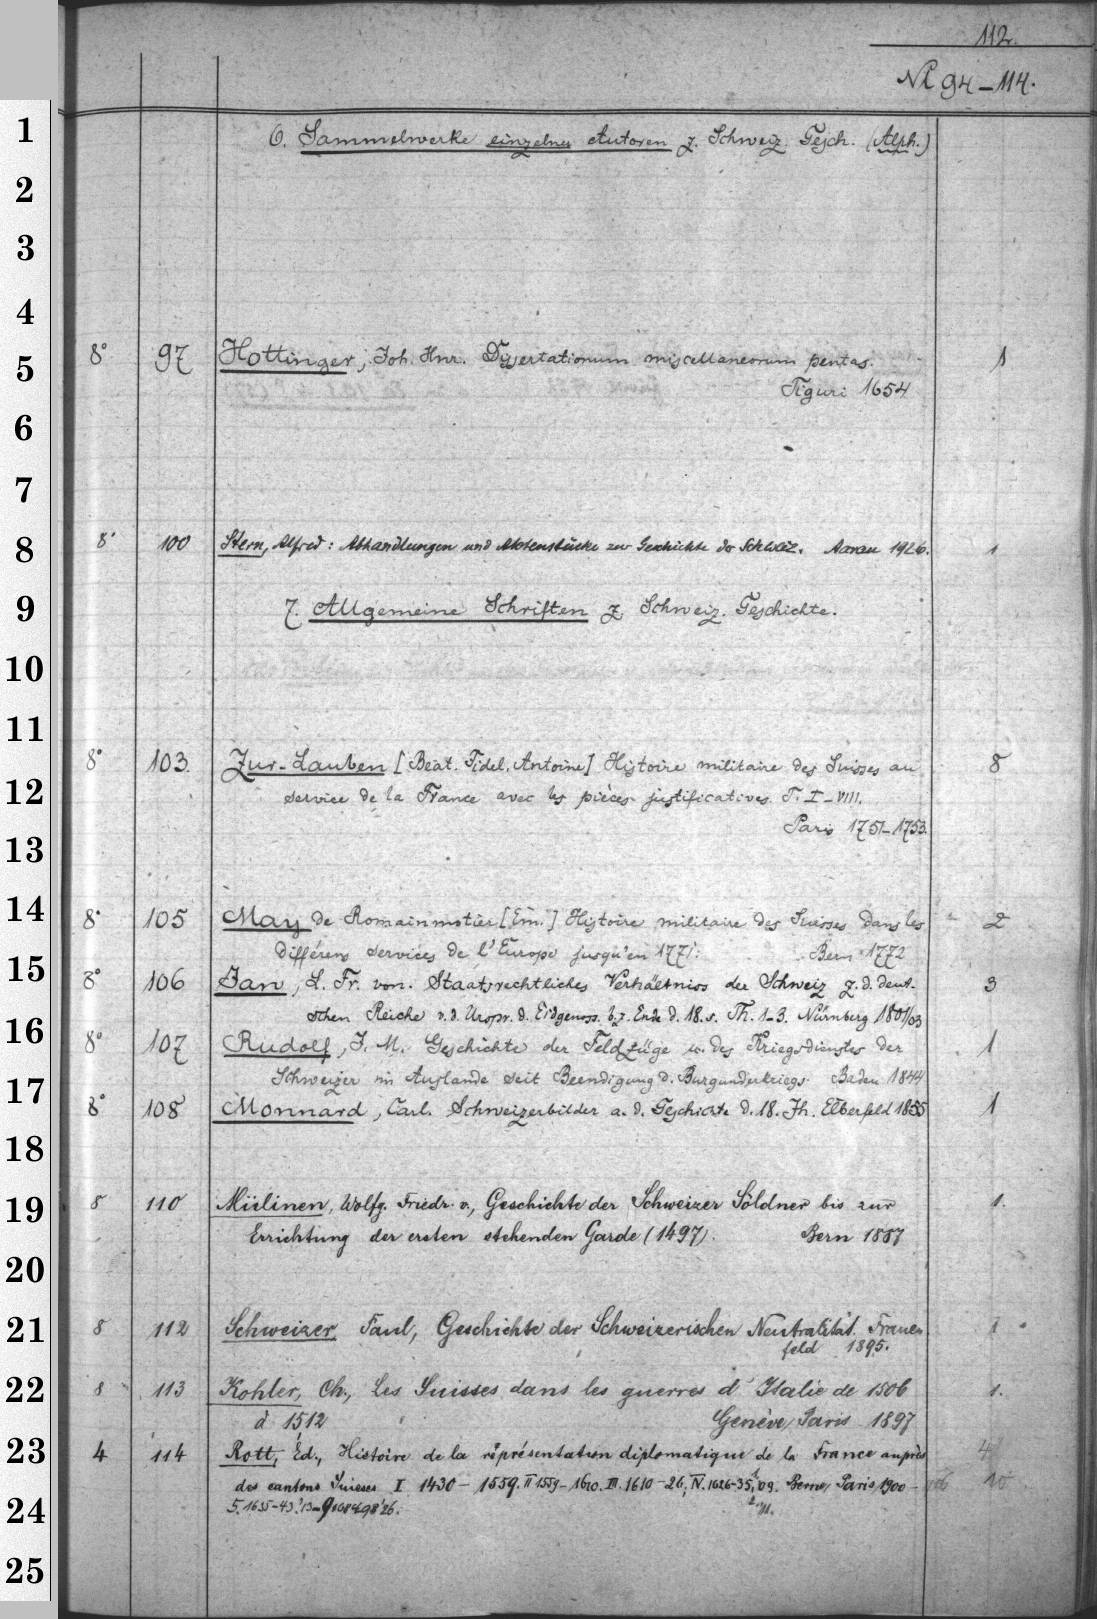 112.
No 94-114.
1
6. Sammelwerke einzelner Autoren z. Schweiz. Gesch. (Alph.)
2
3
4
5
8° 97 Hottinger, Joh. Hnr. Dissertationum miscellaneorum pentas. 1
Tiguri 1654
6
7
8
8° 100 Stern, Alfred: Abhandlungen und Aktenstücke zur Geschichte der Schweiz. Aarau 1926. 1
9
7. Allgemeine Schriften z. Schweiz. Geschichte.
10
11
8° 103. Zur-Lauben [Béat. Fidel. Antoine] Histoire militaire des Suisses au 8
12
service de la France avec les pièces justificatives. T. I-VIII.
Paris 1751-1753.
13
14
8° 105 May de Romainmotier [Em.] Histoire militaire des Suisses dans les 2
différens services de l'Europe jusqu'en 1771. Bern 1772
15
8° 106 Jan, L. Fr. von. Staatsrechtliches Verhältniss der Schweiz z. d. deut- 3
schen Reiche v. d. Urspr. d. Eidgenoss. b. z. Ende d. 18. s. Th. 1-3. Nürnberg 1801/03
16
8° 107 Rudolf, J. M. Geschichte der Feldzüge u. des Kriegsdienstes der 1
Schweizer im Auslande seit Beendigung d. Burgunderkriegs. Baden 1844
17
8° 108 Monnard, Carl. Schweizerbilder a. d. Geschichte d. 18. Jh. Elberfeld 1855 1
18
19
8 110 Mülinen, Wolfg. Friedr. v., Geschichte der Schweizer Söldner bis zur 1.
Errichtung der ersten stehenden Garde (1497). Bern 1887
20
21
8 112 Schweizer, Paul, Geschichte der Schweizerischen Neutralität. Frauen 1
feld 1895.
22
8 113 Kohler, Ch., Les Suisses dans les guerres d'Italie de 1506 1.
à 1512 Genève, Paris 1897
23
4 114 Rott, Éd., Histoire de la représentation diplomatique de la France auprès 4
des cantons Suisses I 1430-1559. II 1559-1610. III. 1610-26, IV. 1626-35, '09. Berne, Paris, 1900- 10
24
5. 1635-43 '13-
25